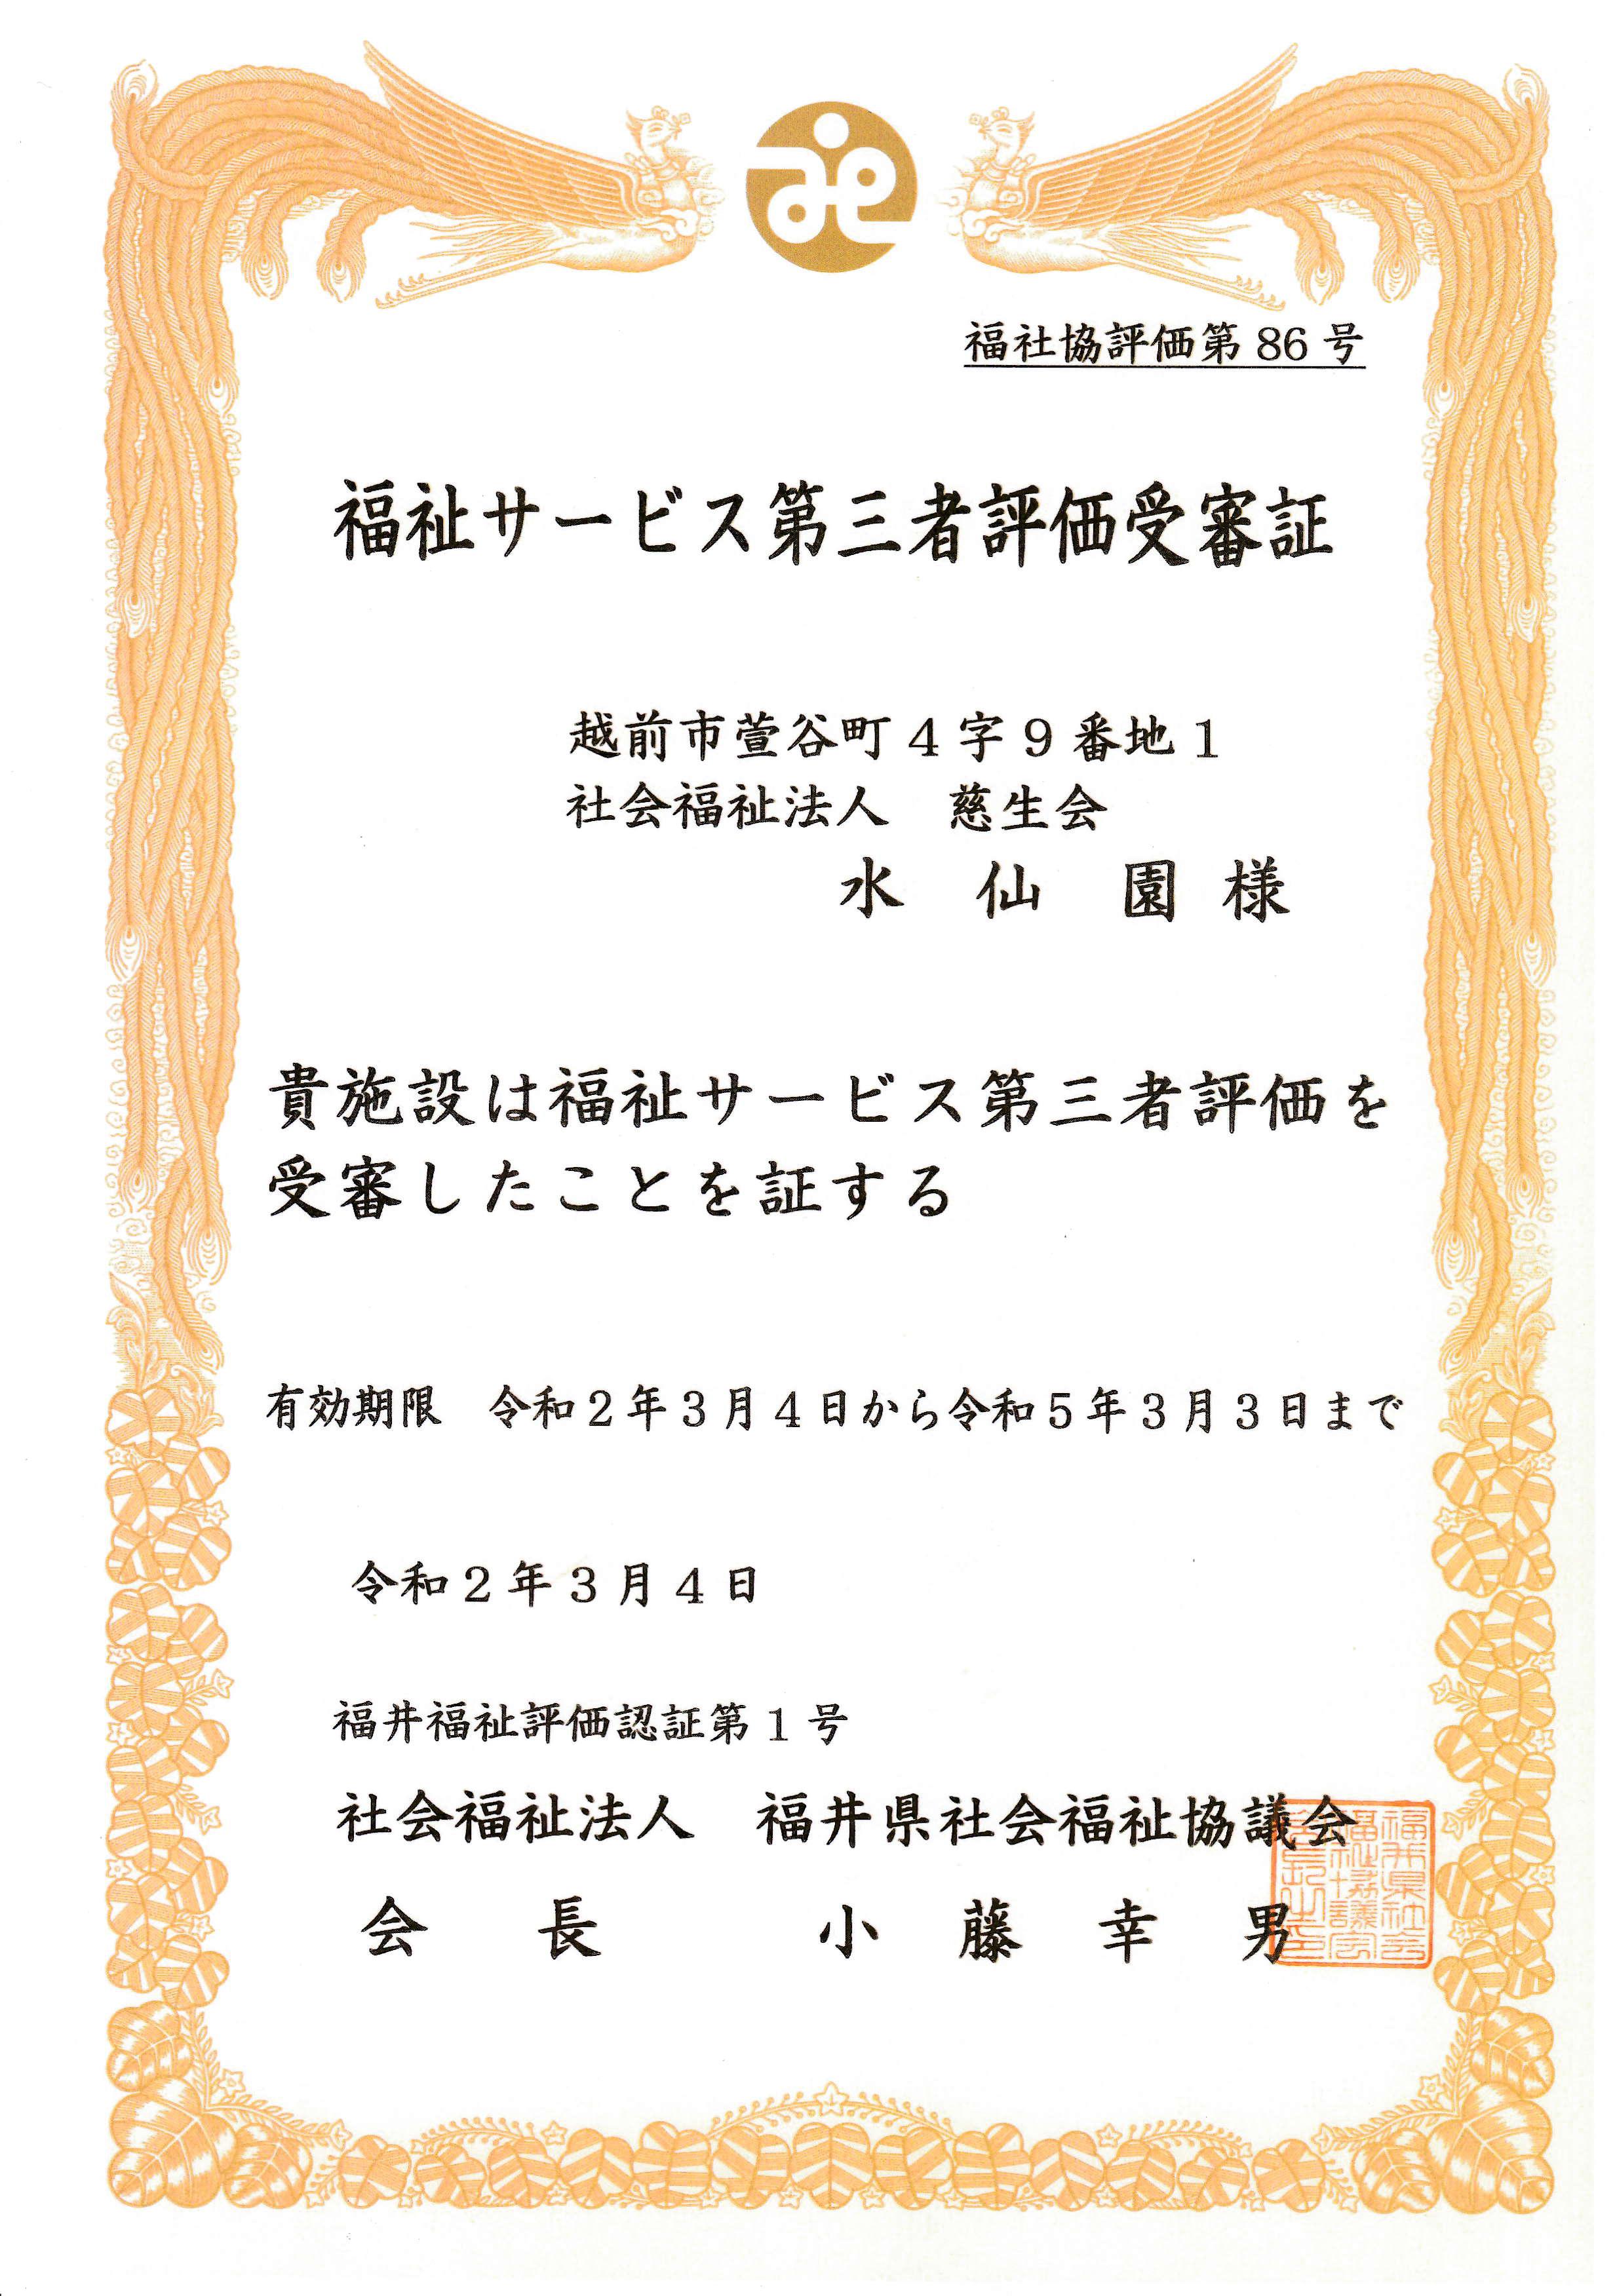 福社協評価第86号
福祉サービス第三者評価受審証
越前市萱谷町4字9番地1
社会福祉法人　慈生会
水仙園様
貴施設は福祉サービス第三者評価を
受審したことを証する
有効期限　令和2年3月4日から令和5年3月3日まで
令和2年3月4日
福井福祉評価認証第1号
社会福祉法人　福井県社会福祉協議会
会長　小藤幸男